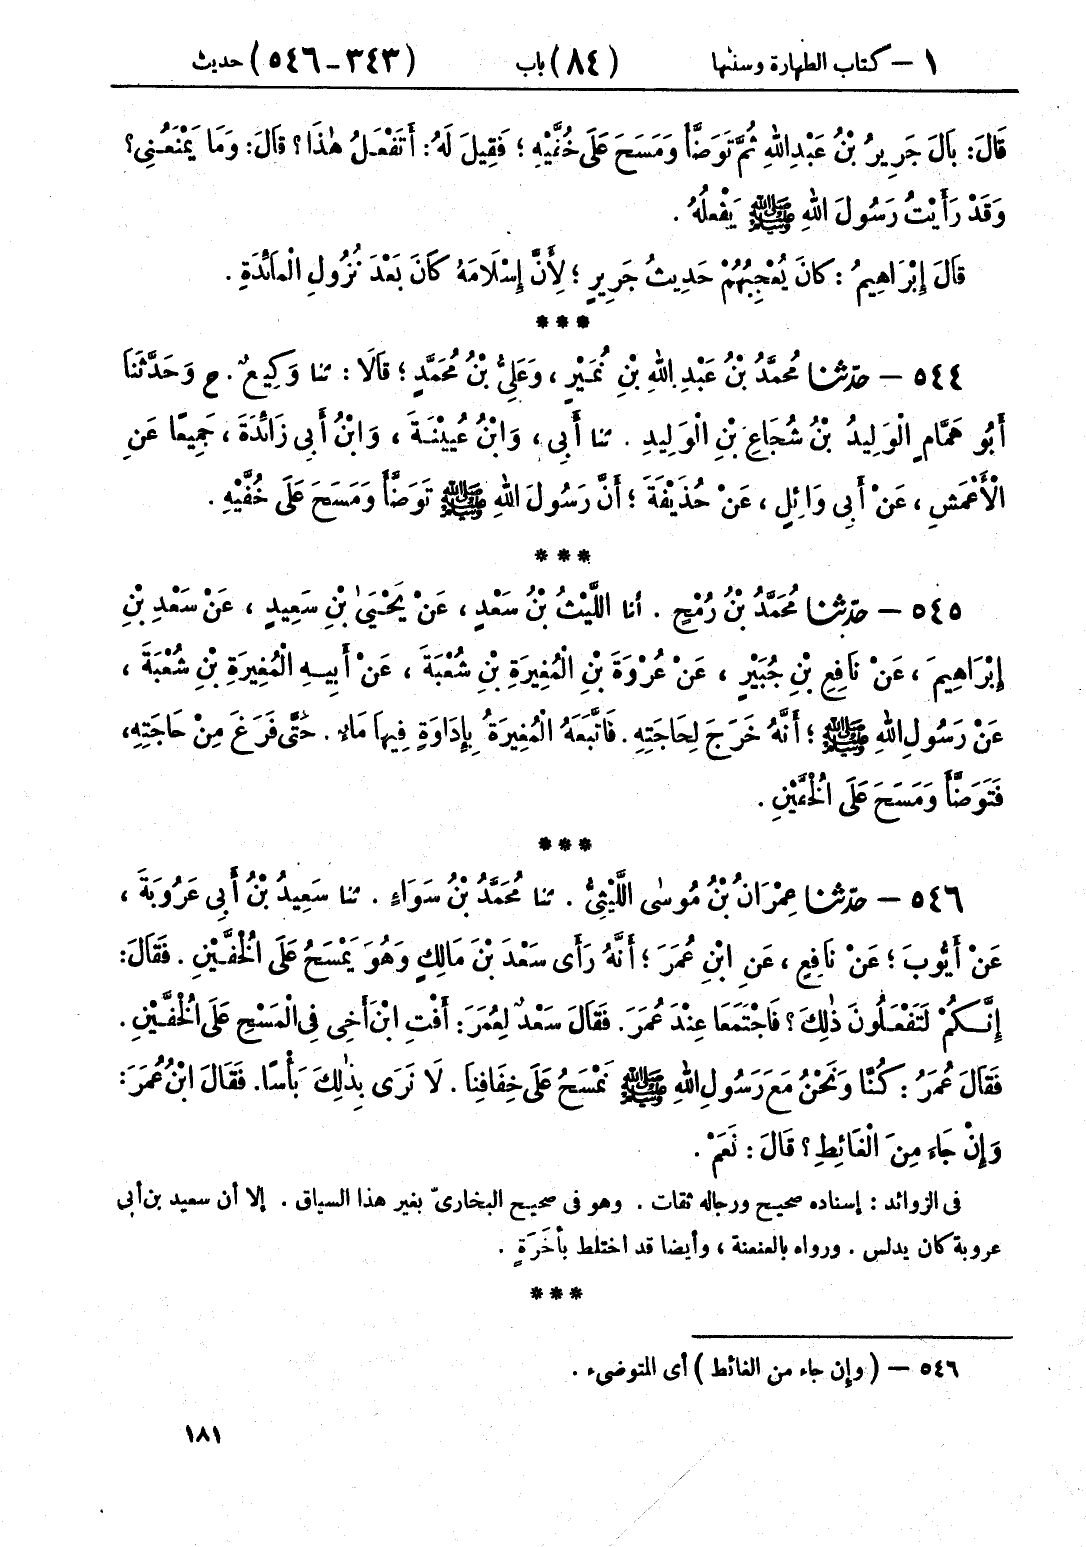 ١ – كتاب الطهارة وسننها (٨٤) باب (٣٤٣ – ٥٤٦) حديث
قَالَ: بَالَ جَرِيرُ بْنُ عَبْدِاللهِ ثُمَّ تَوَضَّأَ وَمَسَحَ عَلَى خُفَّيْهِ ؛ فَقِيلَ لَهُ: أَتَفْعَلُ هٰذَا؟ قَالَ: وَمَا يَمْنَعُنِي؟
وَقَدْ رَأَيْتُ رَسُولَ اللهِ ﷺ يَفْعَلُهُ .
قَالَ إِبْرَاهِيمُ : كَانَ يُعْجِبُهُمْ حَدِيثُ جَرِيرٍ ؛ لِأَنَّ إِسْلَامَهُ كَانَ بَعْدَ نُزُولِ الْمَائِدَةِ .
***
٥٤٤ – حدّثنا مُحَمَّدُ بْنُ عَبْدِ اللهِ بْنِ نُمَيْرٍ ، وَعَلِيُّ بْنُ مُحَمَّدٍ ؛ قَالَا : ثنا وَكِيعٌ . ح وَحَدَّثَنَا
أَبُو هَمَّامٍ الْوَلِيدُ بْنُ شُجَاعِ بْنِ الْوَلِيدِ . ثنا أَبِي ، وَابْنُ عُيَيْنَةَ ، وَابْنُ أَبِي زَائِدَةَ ، جَمِيعًا عَنِ
الْأَعْمَشِ ، عَنْ أَبِي وَائِلٍ ، عَنْ حُذَيْفَةَ ؛ أَنَّ رَسُولَ اللهِ ﷺ تَوَضَّأَ وَمَسَحَ عَلَى خُفَّيْهِ .
***
٥٤٥ – حدّثنا مُحَمَّدُ بْنُ رُمْحٍ . أنا اللَّيْثُ بْنُ سَعْدٍ ، عَنْ يَحْيَىٰ بْنِ سَعِيدٍ ، عَنْ سَعْدِ بْنِ
إِبْرَاهِيمَ ، عَنْ نَافِعِ بْنِ جُبَيْرٍ ، عَنْ عُرْوَةَ بْنِ الْمُغِيرَةِ بْنِ شُعْبَةَ ، عَنْ أَبِيهِ الْمُغِيرَةِ بْنِ شُعْبَةَ ،
عَنْ رَسُولِ اللهِ ﷺ ؛ أَنَّهُ خَرَجَ لِحَاجَتِهِ . فَاتَّبَعَهُ الْمُغِيرَةُ بِإِدَاوَةٍ فِيهَا مَاءٌ . حَتَّى فَرَغَ مِنْ حَاجَتِهِ،
فَتَوَضَّأَ وَمَسَحَ عَلَى الْخُفَّيْنِ .
***
٥٤٦ – حدّثنا عِمْرَانُ بْنُ مُوسَى اللَّيْثِيُّ . ثنا مُحَمَّدُ بْنُ سَوَاءٍ . ثنا سَعِيدُ بْنُ أَبِي عَرُوبَةَ ،
عَنْ أَيُّوبَ ؛ عَنْ نَافِعٍ ، عَنِ ابْنِ عُمَرَ ؛ أَنَّهُ رَأَى سَعْدَ بْنَ مَالِكٍ وَهُوَ يَمْسَحُ عَلَى الْخُفَّيْنِ . فَقَالَ:
إِنَّكُمْ لَتَفْعَلُونَ ذٰلِكَ؟ فَاجْتَمَعَا عِنْدَ عُمَرَ. فَقَالَ سَعْدٌ لِعُمَرَ: أَفْتِ ابْنَ أَخِي فِي الْمَسْحِ عَلَى الْخُفَّيْنِ .
فَقَالَ عُمَرُ : كُنَّا وَنَحْنُ مَعَ رَسُولِ اللهِ ﷺ نَمْسَحُ عَلَى خِفَافِنَا . لَا نَرَى بِذٰلِكَ بَأْسًا. فَقَالَ ابْنُ عُمَرَ:
وَإِنْ جَاءَ مِنَ الْغَائِطِ؟ قَالَ : نَعَمْ .
فى الزوائد : إسناده صحيح ورجاله ثقات . وهو فى صحيح البخارىّ بغير هذا السياق . إلا أن سعيد بن أبى
عروبة كان يدلس . ورواه بالعنعنة ، وأيضا قد اختلط بأَخَرَةٍ .
***
٥٤٦ – ( وإن جاء من الغائط ) أى المتوضىء .
١٨١